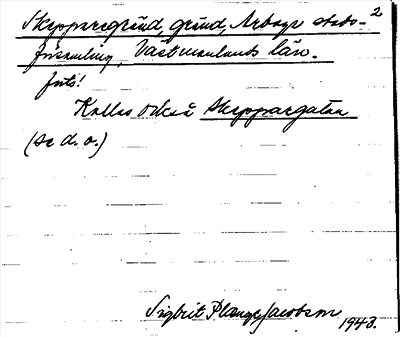 2
Skeppargränd, gränd, Arboga stads-
församling, Västmanlands län.
foto!
Kallas också Skeppargatan
(se d. o.)
Sigbrit Plænge Jacobson
1943.